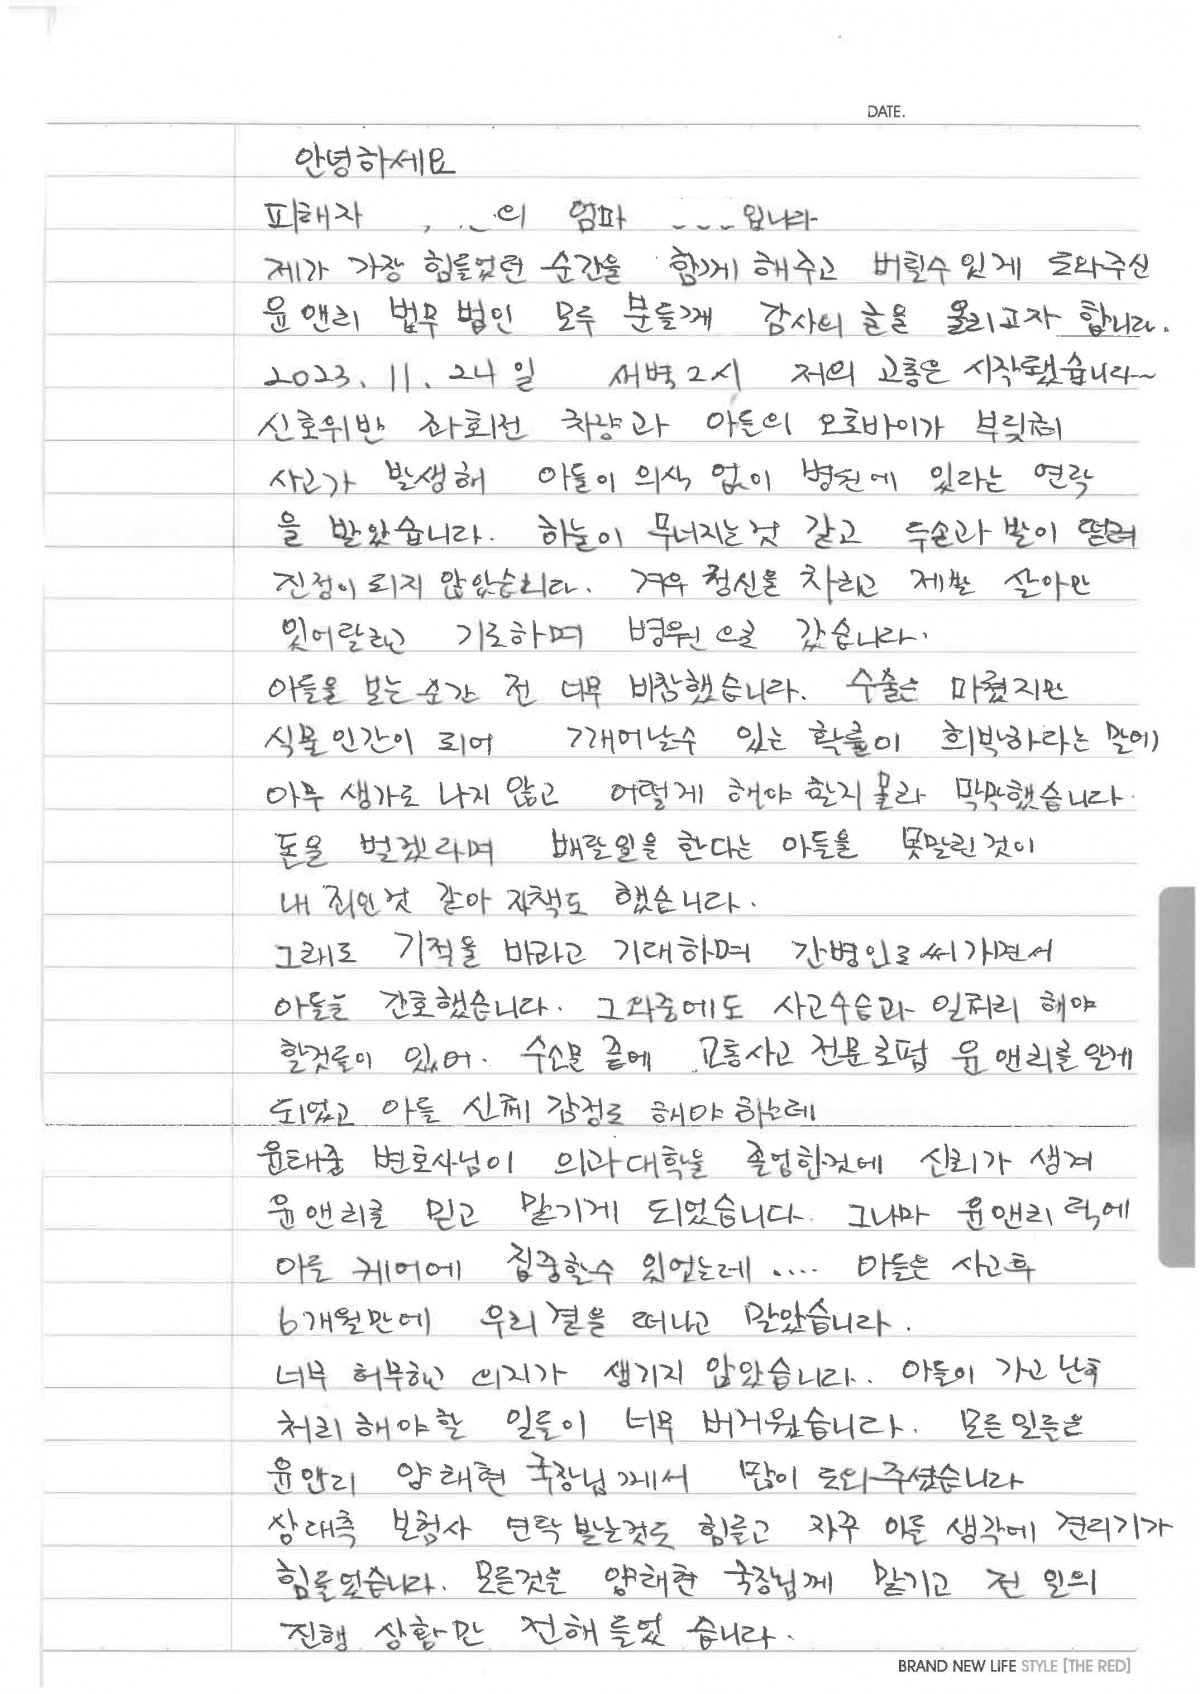 DATE.
안녕하세요
피해자 의 엄마 입니다
제가 가장 힘들었던 순간을 함께 해주고 버틸수 있게 도와주신
윤앤리 법무법인 모두 분들께 감사의 글을 올리고자 합니다.
2023. 11. 24일 새벽 2시 저의 고통은 시작됐습니다~
신호위반 좌회전 차량과 아들의 오토바이가 부딪혀
사고가 발생해 아들이 의식 없이 병원에 있다는 연락
을 받았습니다. 하늘이 무너지는것 같고 두손과 발이 떨려
진정이 되지 않았습니다. 겨우 정신을 차리고 제발 살아만
있어달라고 기도하며 병원으로 갔습니다.
아들을 보는 순간 전 너무 비참했습니다. 수술은 마쳤지만
식물인간이 되어 깨어날수 있는 확률이 희박하다는 말에
아무 생각도 나지 않고 어떻게 해야 할지 몰라 막막했습니다.
돈을 벌겠다며 배달일을 한다는 아들을 못말린것이
내 죄인것 같아 자책도 했습니다.
그래도 기적을 바라고 기대하며 간병인도 써가면서
아들을 간호했습니다. 그와중에도 사고수습과 일처리 해야
할것들이 있어. 수소문 끝에 교통사고 전문로펌 윤앤리를 알게
되었고 아들 신체 감정도 해야 하는데
윤태중 변호사님이 의과대학을 졸업한것에 신뢰가 생겨
윤앤리를 믿고 맡기게 되었습니다. 그나마 윤앤리 덕에
아들 케어에 집중할수 있었는데 .... 아들은 사고후
6개월만에 우리 곁을 떠나고 말았습니다.
너무 허무하고 의지가 생기지 않았습니다. 아들이 가고 난후
처리해야할 일들이 너무 버거웠습니다. 모든일들은
윤앤리 양태현 국장님께서 많이 도와주셨습니다
상대측 보험사 연락 받는것도 힘들고 자꾸 아들 생각에 견디기가
힘들었습니다. 모든것을 양태현 국장님께 맡기고 전 일의
진행 상황만 전해 들었습니다.
BRAND NEW LIFE STYLE [THE RED]